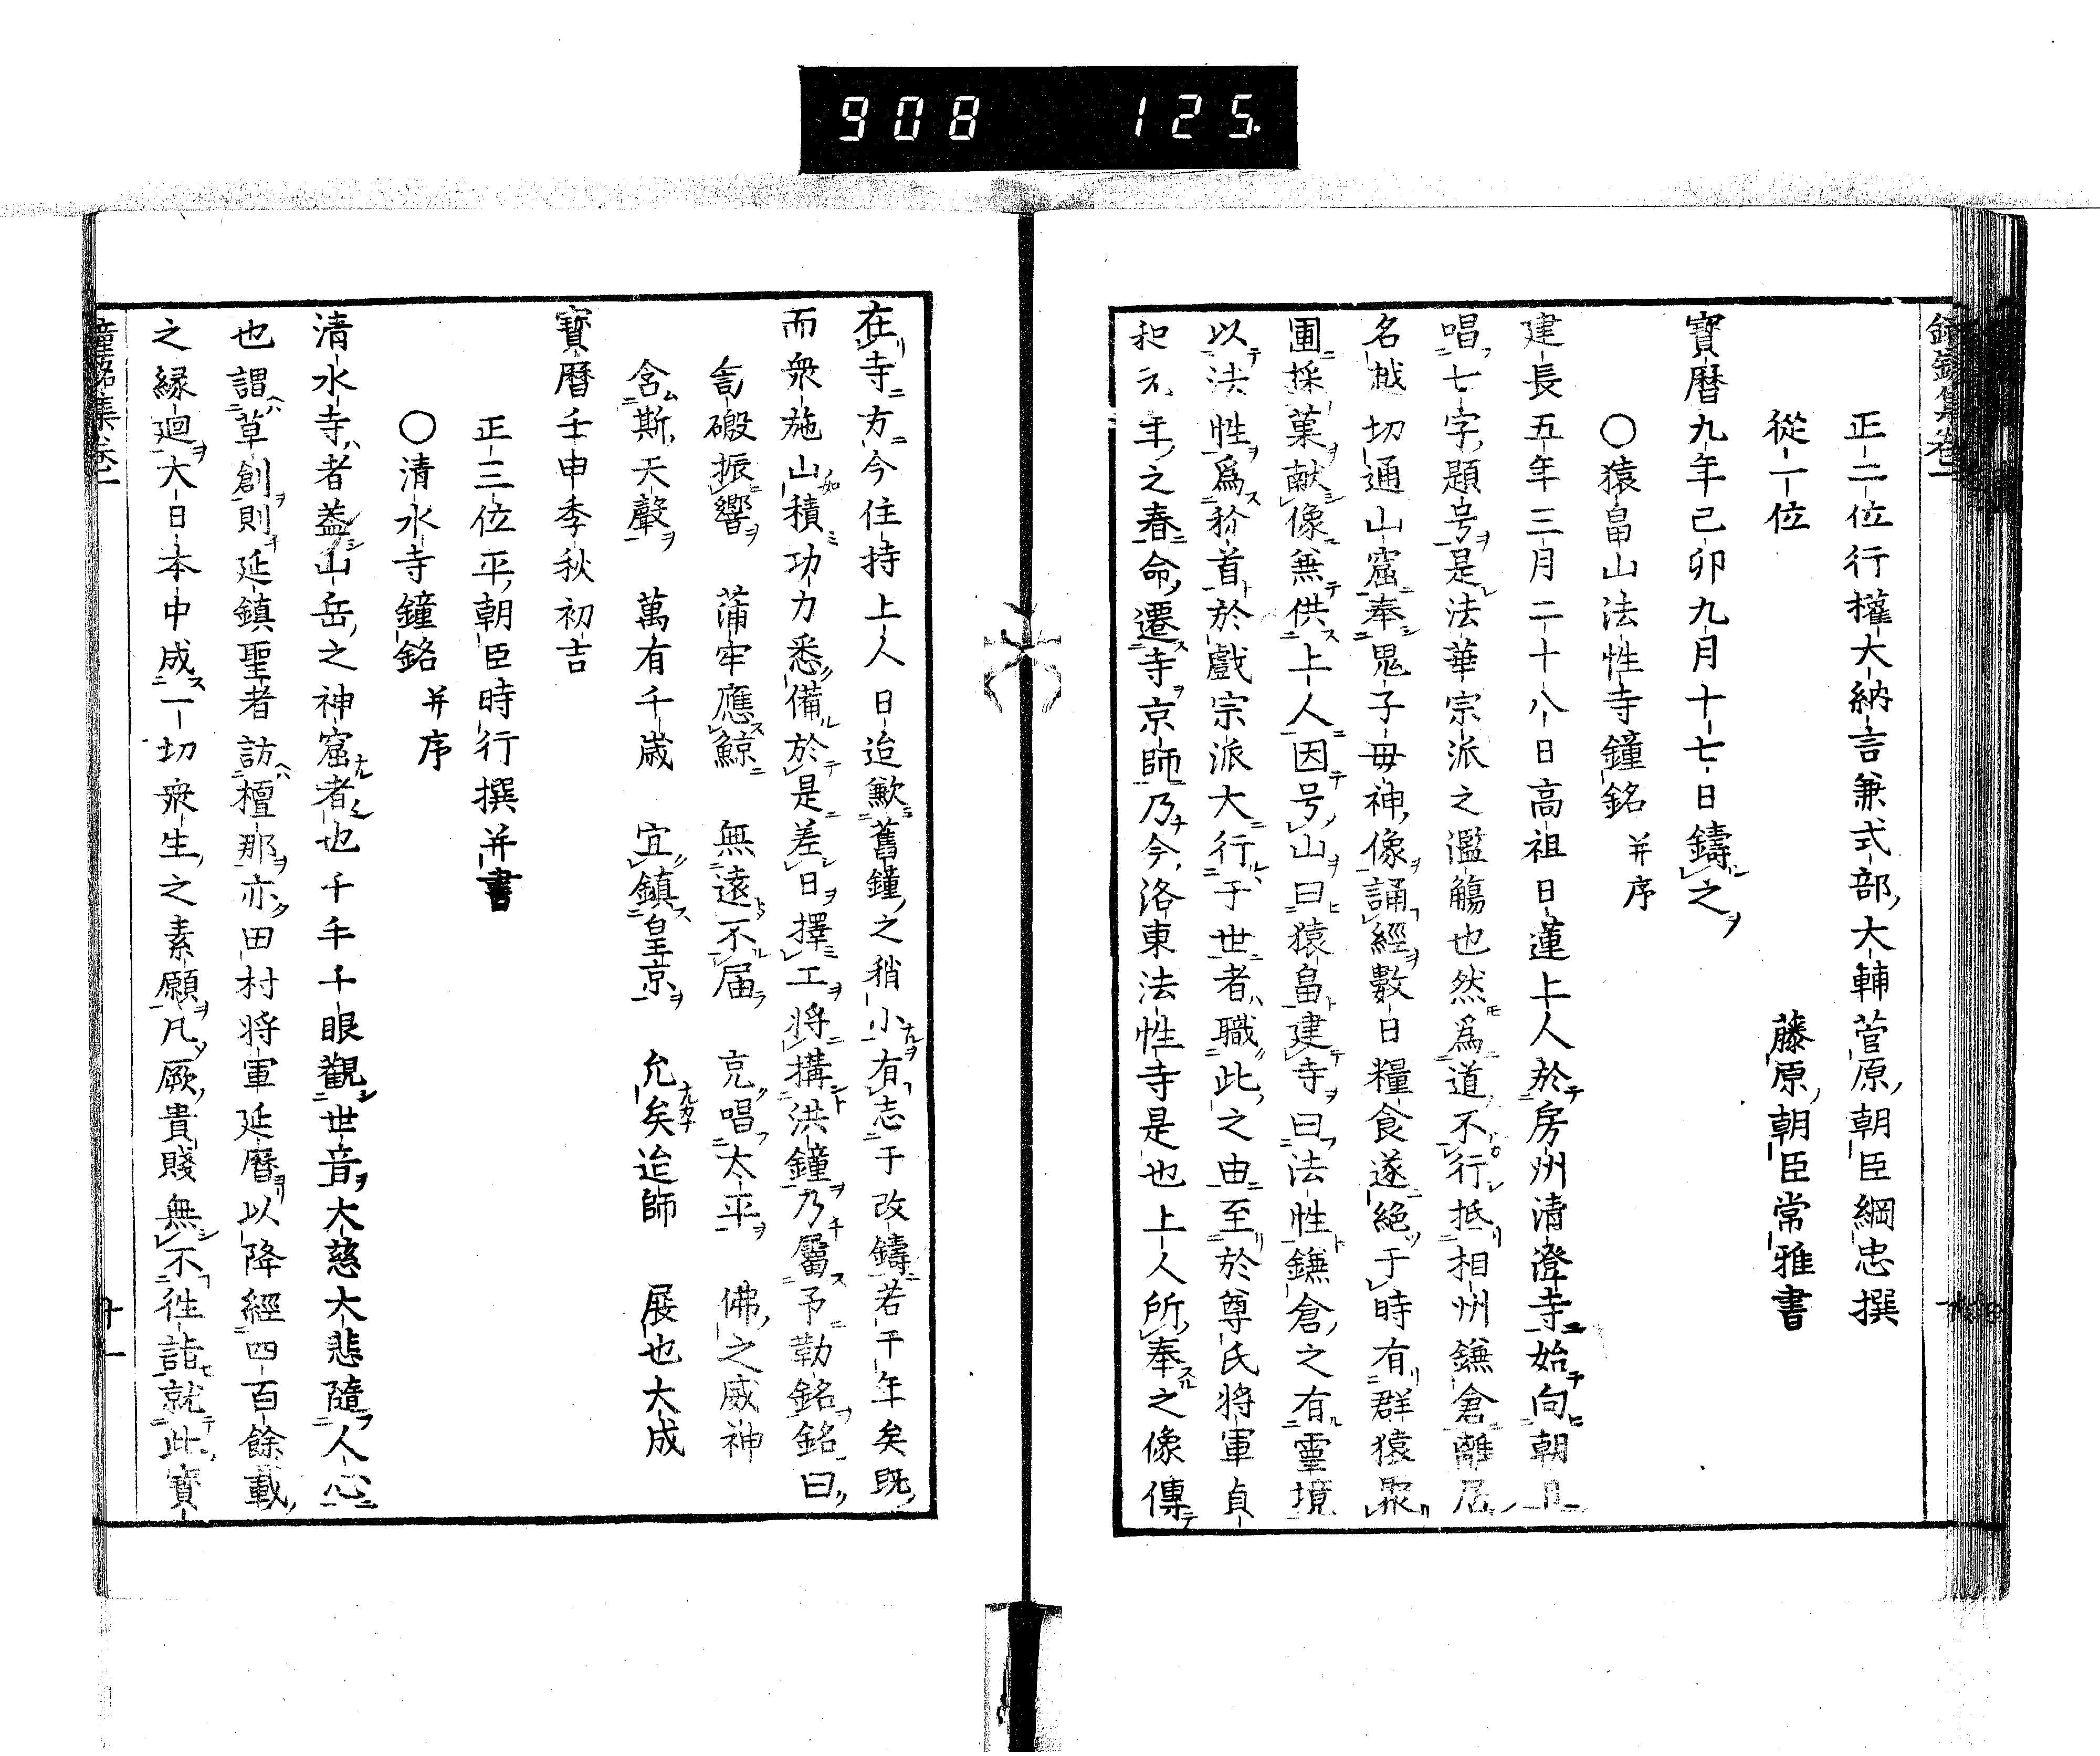 908 125
正二位行權大納言兼式部大輔菅原朝臣綱忠撰
從一位 藤原朝臣常雅書
寶曆九年己卯九月十七日鑄之
○猿畠山法性寺鐘銘 并序
建長五年三月二十八日高祖日蓮上人於房州清澄寺始向朝日
唱七字題号是法華宗派之濫觴也然爲道不行抵相州鎌倉離居
名越切通山窟奉鬼子毋神像誦經數日糧食遂絕于時有群猿聚
圃採菓献像兼供上人因号山曰猿畠建寺曰法性鎌倉之有靈境
以法性爲称首於戲宗派大行于世者職此之由至於尊氏将軍貞
和元年之春命遷寺京師乃今洛東法性寺是也上人所奉之像傳
在寺方今住持上人日迨歉舊鐘之稍小有志于改鑄若干年矣既
而衆施山積功力悉備於是差日擇工将搆洪鐘乃屬予勒銘銘曰
訇磤振響 蒲牢應鯨 無遠不届 克唱太平 佛之威神
含斯天聲 萬有千歲 宜鎮皇京 允矣迨師 展也大成
寶曆壬申季秋初吉
正三位平朝臣時行撰并書
○清水寺鐘銘 并序
清水寺者盖山岳之神窟者也千手千眼觀世音大慈大悲隨人心
也謂草創則延鎮聖者訪檀那亦田村将軍延曆以降經四百餘載
之緣廻大日本中成一切衆生之素願凡厥貴賤無不徃詣就此寶
鐘銘集卷一
十一